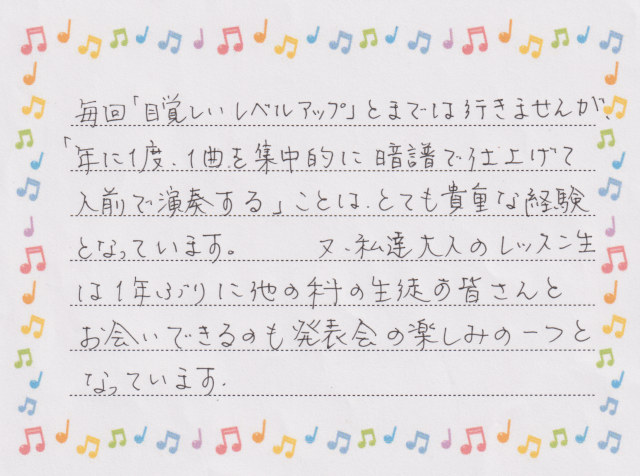 毎回「目覚しいレベルアップ」とまでは行きませんが、
「年に1度、1曲を集中的に暗譜で仕上げて
人前で演奏する」ことは、とても貴重な経験
となっています。 又、私達大人のレッスン生
は1年ぶりに他の科の生徒の皆さんと
お会いできるのも発表会の楽しみの一つと
なっています.